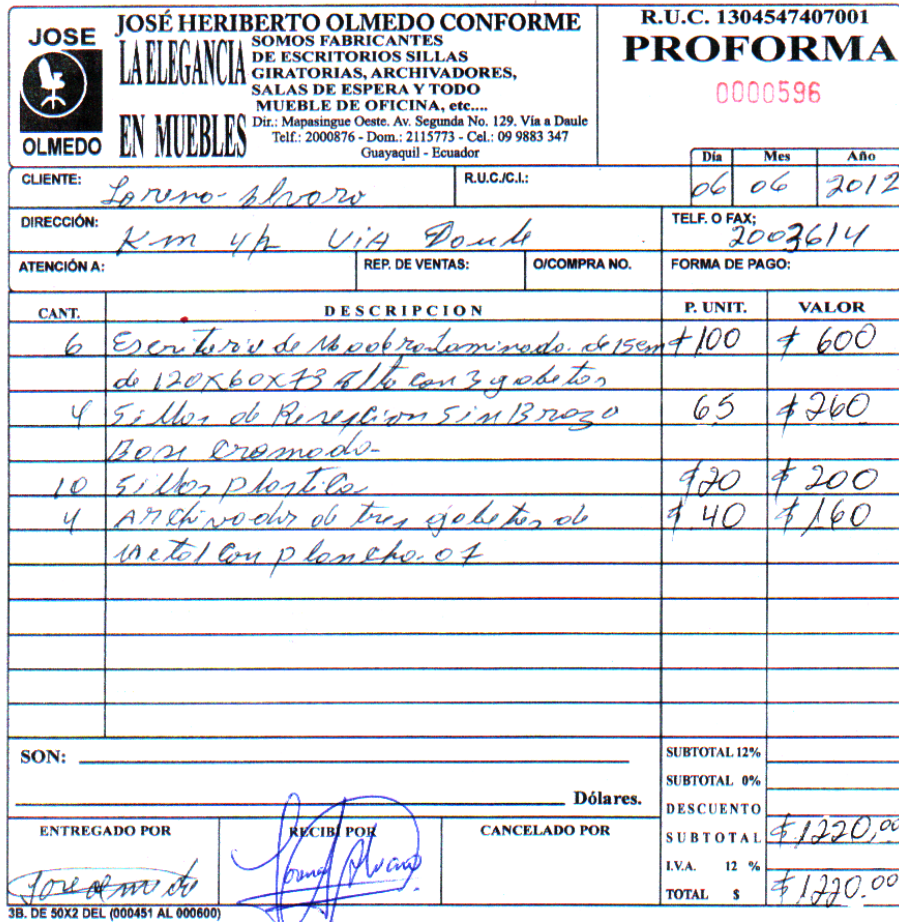 JOSE
OLMEDO
JOSÉ HERIBERTO OLMEDO CONFORME
LA ELEGANCIA
EN MUEBLES
SOMOS FABRICANTES
DE ESCRITORIOS SILLAS
GIRATORIAS, ARCHIVADORES,
SALAS DE ESPERA Y TODO
MUEBLE DE OFICINA, etc....
Dir.: Mapasingue Oeste. Av. Segunda No. 129. Vía a Daule
Telf.: 2000876 - Dom.: 2115773 - Cel.: 09 9883 347
Guayaquil - Ecuador
R.U.C. 1304547407001
PROFORMA
0000596
Día Mes Año
06 06 2012
CLIENTE: Lorena Alvaro R.U.C./C.I.:
DIRECCIÓN: Km 4 1/2 ViA Daule TELF. O FAX; 2003614
ATENCIÓN A: REP. DE VENTAS: O/COMPRA NO. FORMA DE PAGO:
CANT. DESCRIPCION P. UNIT. VALOR
6 Escritorio de de 15cm $100 $ 600
de 120X60X73 Alto con 3 gabetas
4 Sillas de Recepcion Sin Brazo 65 $260
Base cromada
10 Sillas plastica $20 $ 200
4 Archivador de tres gabetas de $ 40 $160
Metal con plancha 07
SON:
Dólares.
SUBTOTAL 12%
SUBTOTAL 0%
DESCUENTO
SUBTOTAL $1220,00
I.V.A. 12 %
TOTAL $ $1220.00
ENTREGADO POR RECIBI POR CANCELADO POR
Jose Olmedo Lorena Alvaro
3B. DE 50X2 DEL (000451 AL 000600)